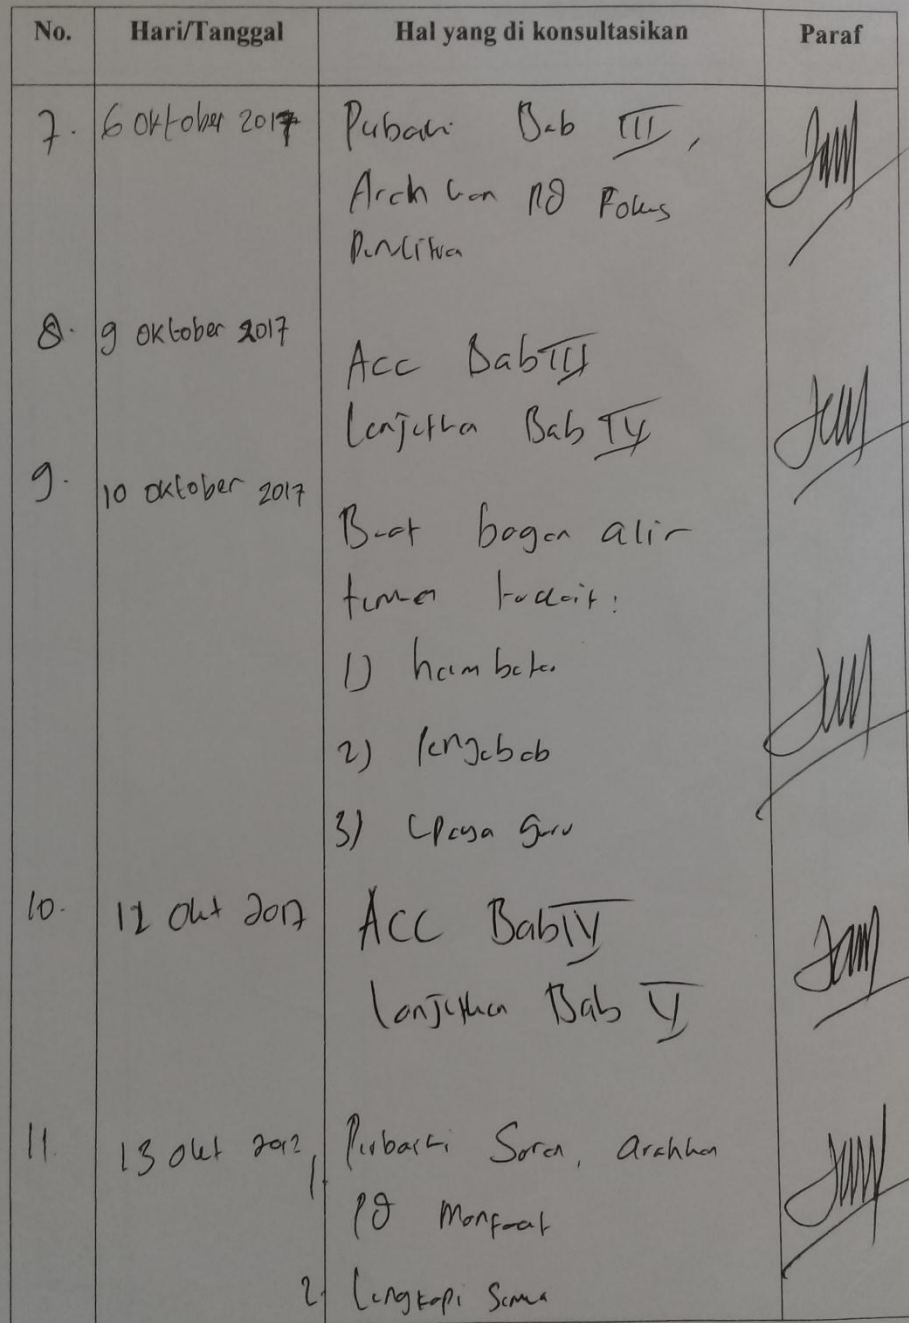 No. Hari/Tanggal Hal yang di konsultasikan Paraf
7. 6 Oktober 2017 Perbaiki Bab III,
Arahkan pd Fokus
Penelitian
8. 9 Oktober 2017
Acc Bab III
Lanjutkan Bab IV
9. 10 Oktober 2017
Buat bagan alir
temuan terkait:
1) hambatan
2) Penyebab
3) Upaya guru
10. 12 Okt 2017 ACC Bab IV
Lanjutkan Bab V
11. 13 Okt 2017 1. Perbaiki Saran, arahkan
pd Manfaat
2. Lengkapi Semua